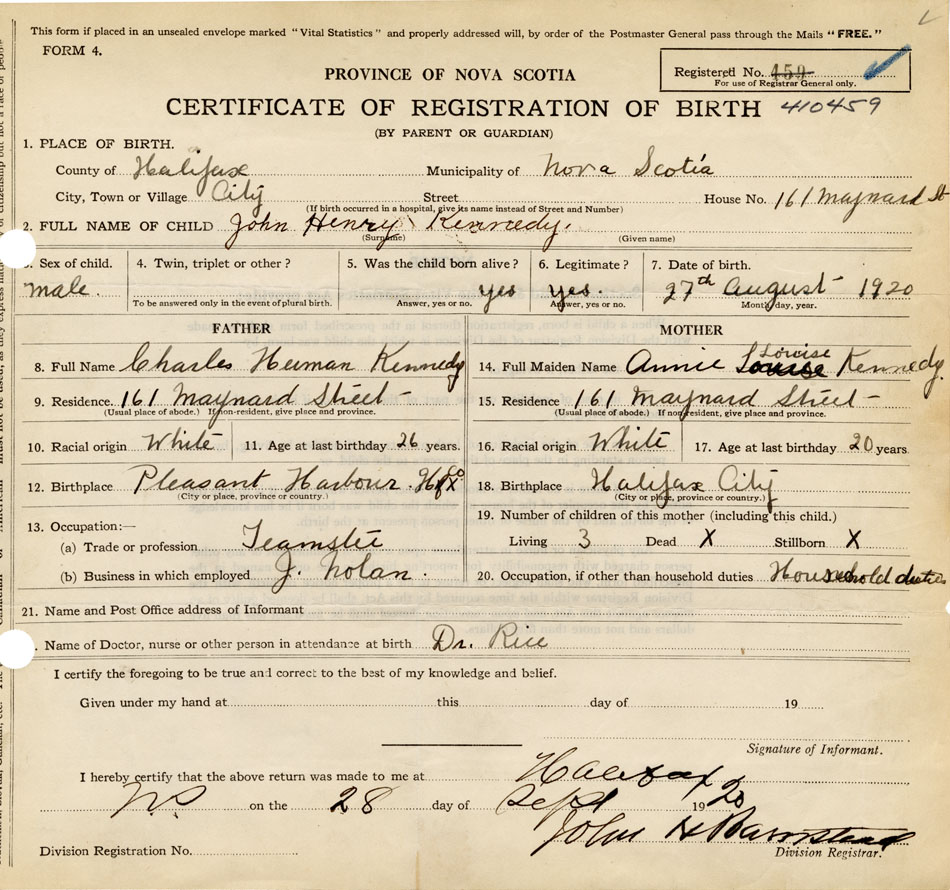 This form if placed in an unsealed envelope marked "Vital Statistics" and properly addressed will, by order of the Postmaster General pass through the Mails "FREE."
FORM 4.
PROVINCE OF NOVA SCOTIA
Registered No. 459
For use of Registrar General only.
CERTIFICATE OF REGISTRATION OF BIRTH 410459
(BY PARENT OR GUARDIAN)
1. PLACE OF BIRTH.
County of Halifax Municipality of Nova Scotia
City, Town or Village City Street House No. 161 Maynard St
(If birth occurred in a hospital, give its name instead of Street and Number)
2. FULL NAME OF CHILD John Henry Kennedy.
(Surname) (Given name)
Sex of child. 4. Twin, triplet or other? 5. Was the child born alive? 6. Legitimate? 7. Date of birth.
male. yes yes. 27th August - 1920
To be answered only in the event of plural birth. Answer, yes or no. Answer, yes or no. Month, day, year.
FATHER MOTHER
8. Full Name Charles Herman Kennedy 14. Full Maiden Name Annie Louise Kennedy.
9. Residence. 161 Maynard Street - 15. Residence 161 Maynard Street -
(Usual place of abode.) If non-resident, give place and province. (Usual place of abode.) If non-resident, give place and province.
10. Racial origin White 11. Age at last birthday 26 years. 16. Racial origin White 17. Age at last birthday 20 years.
12. Birthplace Pleasant Harbour. Hfx Co 18. Birthplace Halifax City
(City or place, province or country.) (City or place, province or country.)
19. Number of children of this mother (including this child.)
13. Occupation:—
(a) Trade or profession Teamster Living 3 Dead X Stillborn X
(b) Business in which employed J. Nolan. 20. Occupation, if other than household duties Household duties
21. Name and Post Office address of Informant
Name of Doctor, nurse or other person in attendance at birth Dr. Rice
I certify the foregoing to be true and correct to the best of my knowledge and belief.
Given under my hand at this day of 19
Signature of Informant.
I hereby certify that the above return was made to me at Halifax
NS on the 28 day of Sept 1920
John H Barnstead
Division Registration No. Division Registrar.